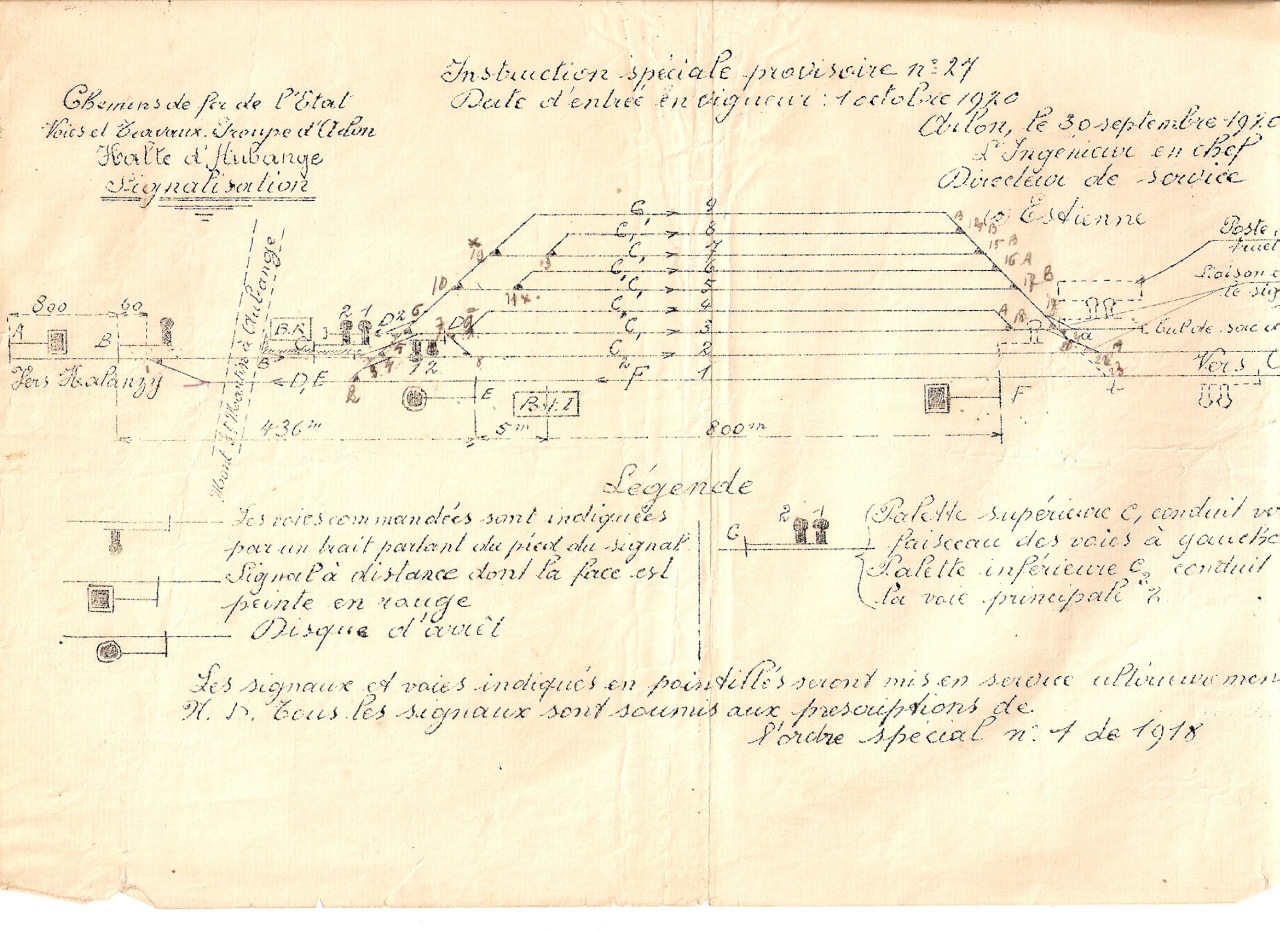 Instruction spéciale provisoire nº 27
Date d'entrée en vigueur : 1 octobre 1920
Chemins de fer de l'Etat
Voies et Travaux. Groupe d'Arlon
Halte d'Aubange
Signalisation
Arlon, le 30 septembre 1920
L'Ingénieur en chef
Directeur de service
(s) Estienne
Poste
Liaison
le sig
Cul de sac
C, 9
8
C, 7
6
5
4
3
C2 2
F 1
800 60
A B
2 1
B.R.
Mont St Martin à Aubange
Vers Halanzy
D, E
E
B.I
F
Vers
436m
5m
800m
Légende
Les voies commandées sont indiquées
par un trait partant du pied du signal
Signal à distance dont la face est
peinte en rouge
Disque d'arrêt
C 2 1
Palette supérieure C, conduit ve
faisceau des voies à gauche
Palette inférieure C2 conduit
la voie principale 2
Les signaux et voies indiqués en pointillés seront mis en service ultérieuremen
N. B. Tous les signaux sont soumis aux prescriptions de
l'ordre spécial nº 1 de 1918